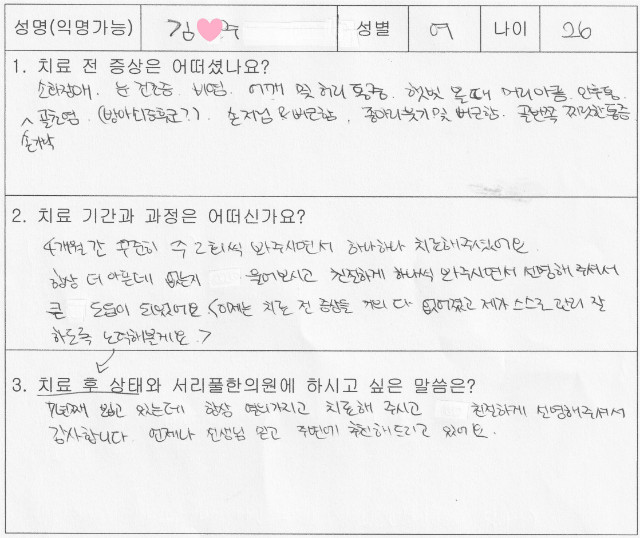 성명(익명가능) 김 주 성별 여 나이 26
1. 치료 전 증상은 어떠셨나요?
소화장애. 눈 건조증. 비염. 어깨 및 허리 통증. 햇빛 볼때 머리아픔. 인후통.
손가락 골관염. (방아쇠증후군?). 손저림&뻐근함, 종아리붓기 및 뻐근함. 골반쪽 찌릿한 통증
2. 치료 기간과 과정은 어떠신가요?
4개월간 꾸준히 주 2회씩 봐주시면서 하나하나 치료해주셨어요.
항상 더 아픈데 없는지 물어보시고 친절하게 하나씩 봐주시면서 설명해 주셔서
큰 도움이 되었어요 <이제는 치료 전 증상들 거의 다 없어졌고 제가 스스로 관리 잘
하도록 노력해볼게요.>
3. 치료 후 상태와 서리풀한의원에 하시고 싶은 말씀은?
년째 알고 있는데 항상 열의가지고 치료해 주시고 친절하게 설명해주셔서
감사합니다. 언제나 선생님 믿고 주변에 추천해드리고 있어요.